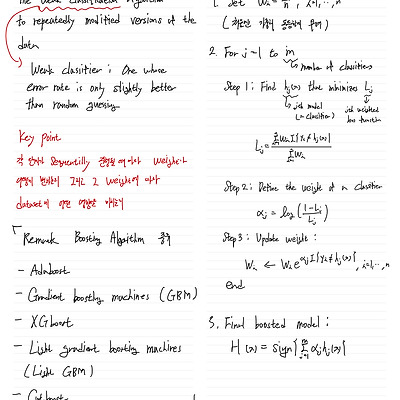 the weak classification algorithm
to repeatedly modified versions of the
data
Weak classifier : One whose
error rate is only slightly better
than random guessing
Key point
각 단계가 Sequentially weight가
그리고 그 weight에 따라
dataset에 어떤 영향을
Remark Boosting Algorithm 종류
- Adaboost
- Gradient boosting machines (GBM)
- XGboost
- Light gradient boosting machines
(Light GBM)
- Catboost
1. Set Wᵢ = 1/n, i=1,…,n
2. For j=1 to m
number of classifiers
Step 1: Find hj(x) that minimizes Lj
jth model
(= classifier)
jth weighted
loss function
Lj = Σ Wᵢ I{yᵢ≠hj(x)} / Σ Wᵢ
Step 2: Define the weight of a classifier
αj = log(1-Lj / Lj)
Step 3: Update weight :
Wᵢ ← Wᵢ e^αj I{yᵢ≠hj(x)}, i=1,…,n
end
3. Final boosted model :
H(x) = sign{Σ αj hj(x)}